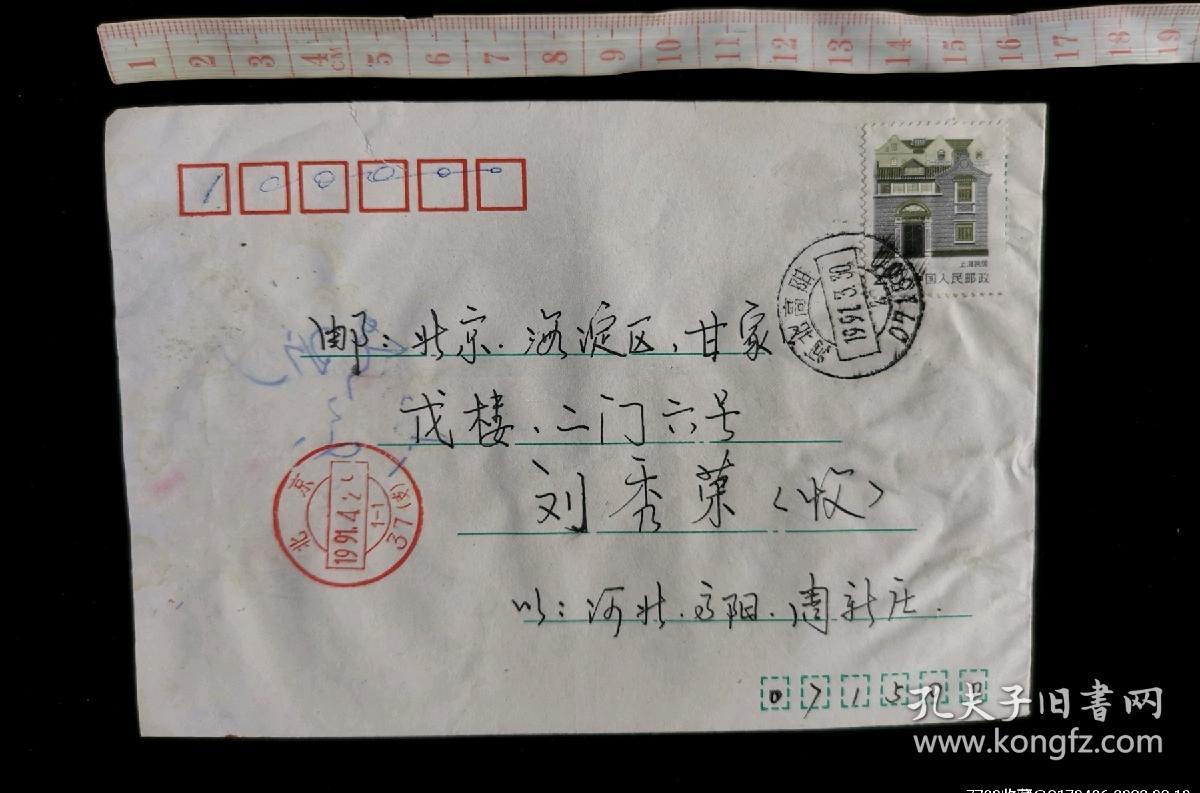 1 2 3 4 5 6 7 8 9 10 11 12 13 14 15 16 17 18 19
CM
1 0 0 0 0 0
上海民居
中国人民邮政
河北高阳
1991.3.30
邮:北京.海淀区.甘家
戊楼.二门六号
刘秀荣〈收〉
北京
1991.4.2
1-1
37(支)
以:河北.高阳.周新庄.
0 7 1 5 0 0
孔夫子旧書网
www.kongfz.com